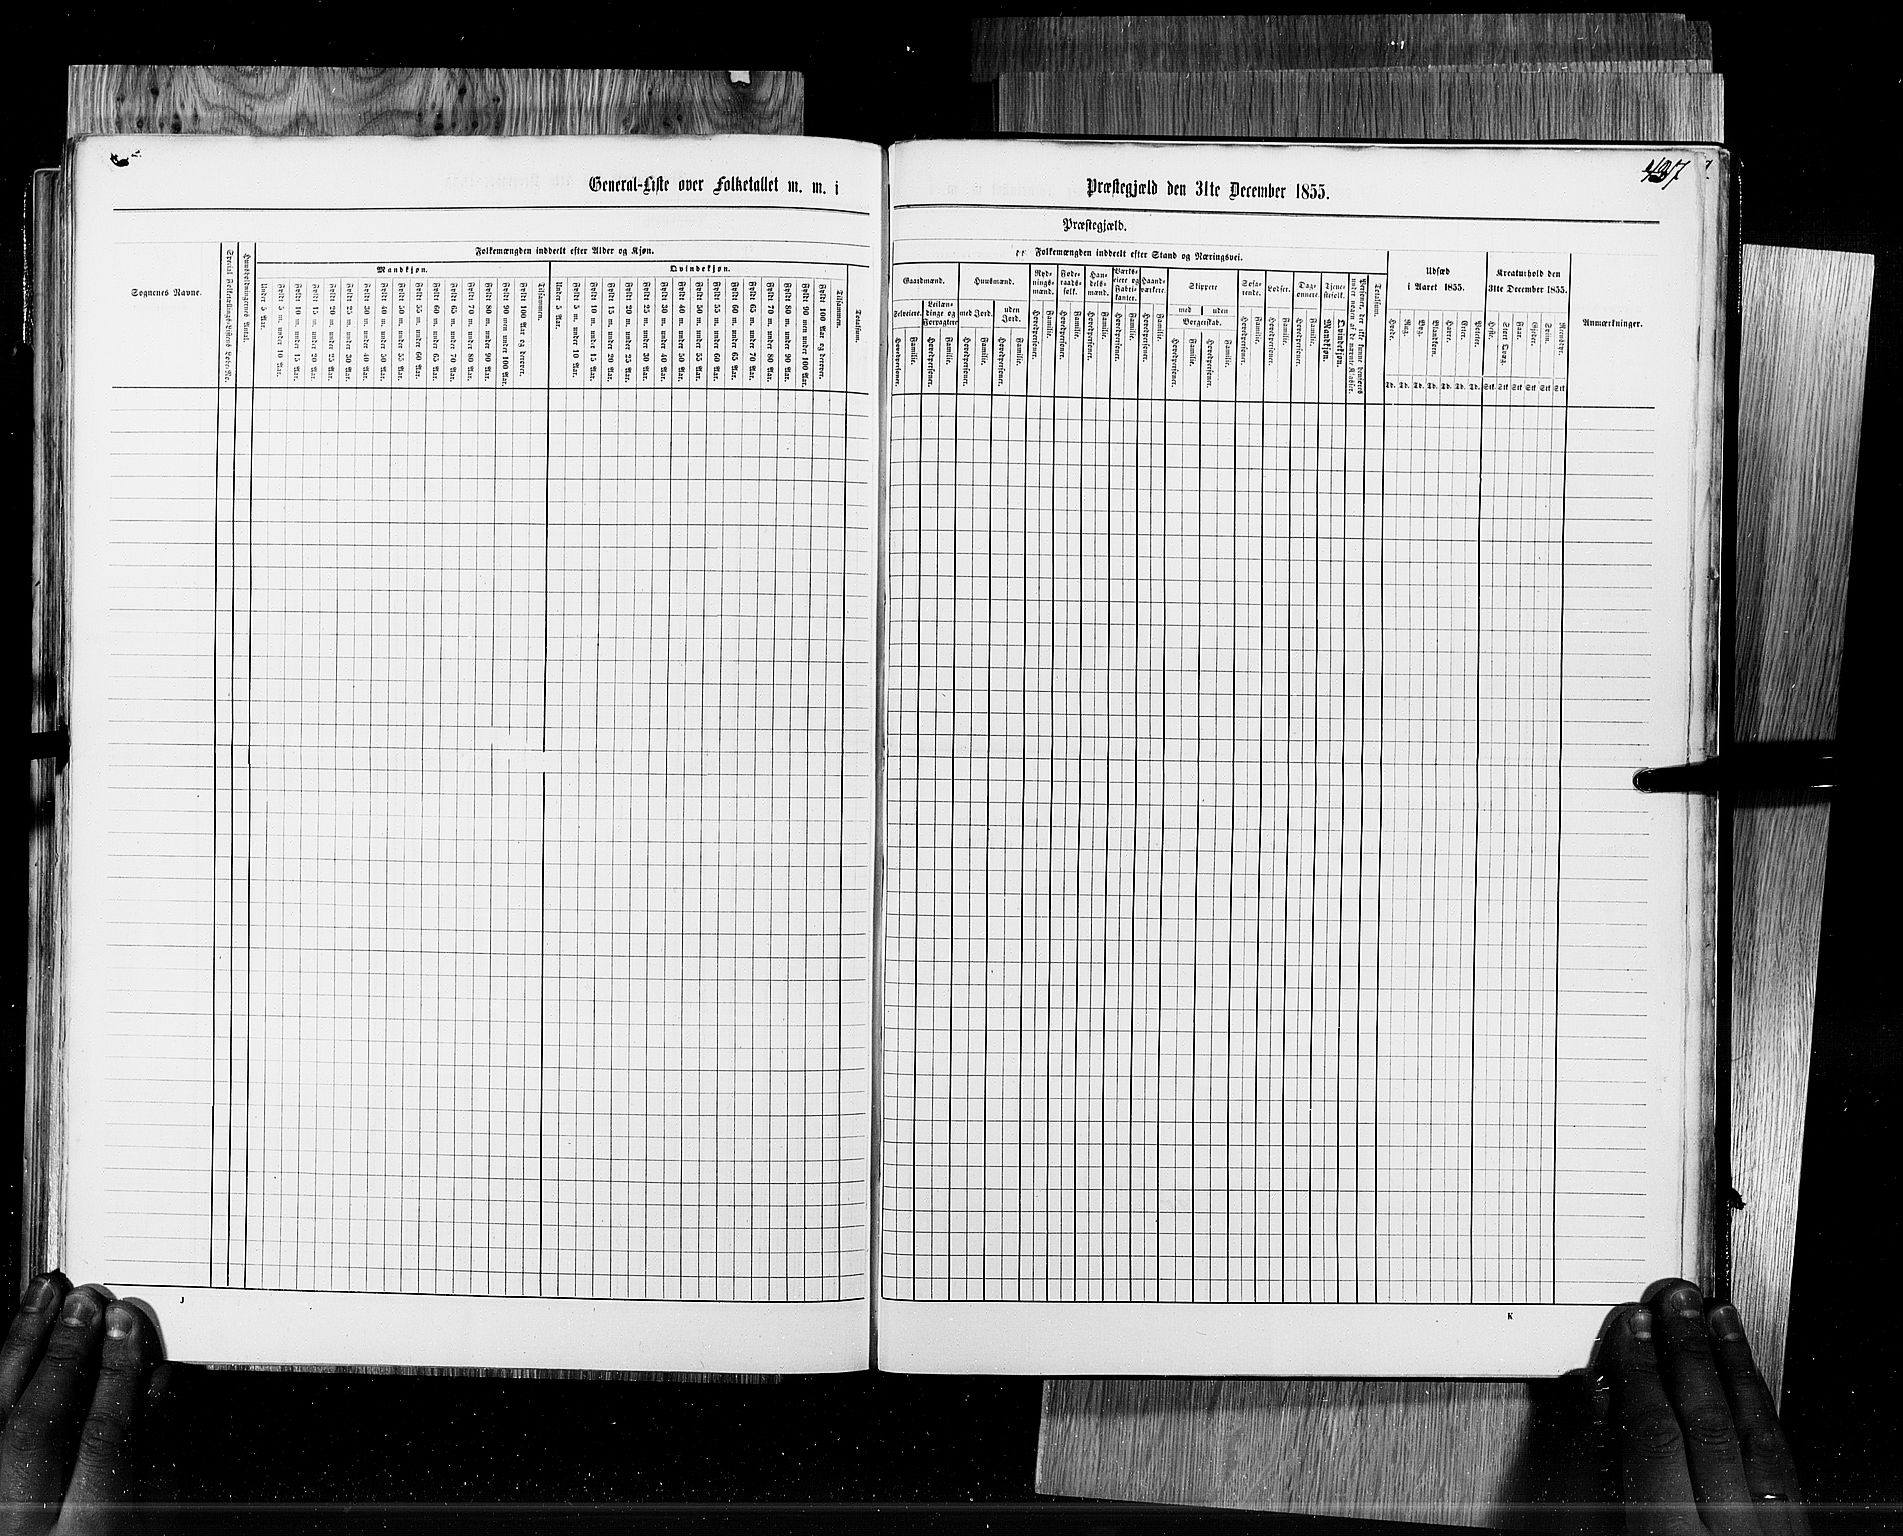 General-Liste over Folketallet m. m. i
Præstegjæld den 31te December 1855.
437
Præstegjæld.
Sognenes Navne.
Huusholdningernes Antal.
Folkemængden inddeelt efter Alder og Kjøn.
Mandkjøn.
Under 5 Aar.
Fyldt 5 m. under 10 Aar.
Fyldt 10 m. under 15 Aar.
Fyldt 15 m. under 20 Aar.
Fyldt 20 m. under 25 Aar.
Fyldt 25 m. under 30 Aar.
Fyldt 30 m. under 40 Aar.
Fyldt 40 m. under 50 Aar.
Fyldt 50 m. under 55 Aar.
Fyldt 55 m. under 60 Aar.
Fyldt 60 m. under 65 Aar.
Fyldt 65 m. under 70 Aar.
Fyldt 70 m. under 80 Aar.
Fyldt 80 m. under 90 Aar.
Fyldt 90 men under 100 Aar.
Fyldt 100 Aar og derover.
Tilsammen.
Qvindekjøn.
Under 5 Aar.
Fyldt 5 m. under 10 Aar.
Fyldt 10 m. under 15 Aar.
Fyldt 15 m. under 20 Aar.
Fyldt 20 m. under 25 Aar.
Fyldt 25 m. under 30 Aar.
Fyldt 30 m. under 40 Aar.
Fyldt 40 m. under 50 Aar.
Fyldt 50 m. under 55 Aar.
Fyldt 55 m. under 60 Aar.
Fyldt 60 m. under 65 Aar.
Fyldt 65 m. under 70 Aar.
Fyldt 70 m. under 80 Aar.
Fyldt 80 m. under 90 Aar.
Fyldt 90 men under 100 Aar.
Fyldt 100 Aar og derover.
Tilsammen.
Totalsum.
Folkemængden inddeelt efter Stand og Næringsvei.
Gaardmænd.
Selveiere.
Hovedpersoner.
Familie.
Leilæn-
dinge og
Forpagtere
Hovedpersoner.
Familie.
Huusmænd.
med Jord.
Hovedpersoner.
Familie.
uden
Jord.
Hovedpersoner.
Familie.
Ryd-
nings-
mænd.
Hovedpersoner.
Familie.
Føde-
raads-
folk.
Hovedpersoner.
Familie.
Han-
dels-
mænd.
Hovedpersoner.
Familie.
Værks-
eiere og
Fabri-
kanter.
Hovedpersoner.
Familie.
Haand-
værkere.
Hovedpersoner.
Familie.
Skippere
med uden
Borgerskab.
Hovedpersoner.
Familie.
Hovedpersoner.
Familie.
Søfa-
rende.
Hovedpersoner.
Familie.
Lodser.
Hovedpersoner.
Familie.
Dag-
lønnere.
Hovedpersoner.
Familie.
Tjene-
stefolk.
Mandkjøn.
Qvindekjøn.
Totalsum.
Udsæd
i Aaret 1855.
Hvede.
Rug.
Byg.
Blandkorn.
Havre.
Erter.
Poteter.
Td. Td. Td. Td. Td. Td. Td.
Kreaturhold den
31te December 1855.
Heste.
Stort Qvæg.
Faar.
Gjeder.
Sviin.
Reensdyr.
Stk Stk Stk Stk Stk Stk
Anmærkninger.
J
K